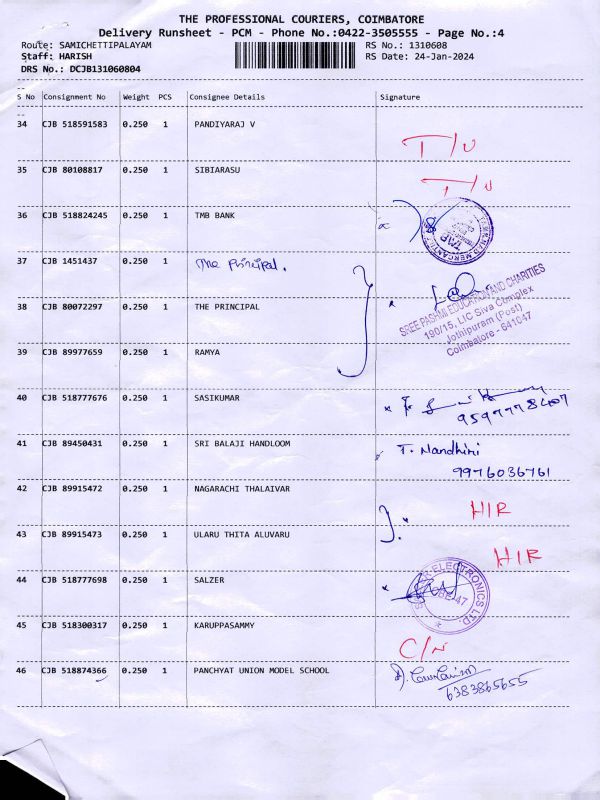 THE PROFESSIONAL COURIERS, COIMBATORE
Delivery Runsheet - PCM - Phone No.:0422-3505555 - Page No.:4
Route: SAMICHETTIPALAYAM RS No.: 1310608
Staff: HARISH RS Date: 24-Jan-2024
DRS No.: DCJB131060804
S No Consignment No Weight PCS Consignee Details Signature
34 CJB 518591583 0.250 1 PANDIYARAJ V T/U
35 CJB 80108817 0.250 1 SIBIARASU T/U
36 CJB 518824245 0.250 1 TMB BANK
TAMILNAD MERCANTILE
37 CJB 1451437 0.250 1 The Principal.
38 CJB 80072297 0.250 1 THE PRINCIPAL
SREE PASHMI EDUCATION AND CHARITIES
190/15, LIC Siva Complex
Jothipuram (Post)
Coimbatore - 641047
39 CJB 89977659 0.250 1 RAMYA
40 CJB 518777676 0.250 1 SASIKUMAR
9597778407
41 CJB 89450431 0.250 1 SRI BALAJI HANDLOOM T. Nandhini
9976036761
42 CJB 89915472 0.250 1 NAGARACHI THALAIVAR HIR
43 CJB 89915473 0.250 1 ULARU THITA ALUVARU HIR
44 CJB 518777698 0.250 1 SALZER
ELECTRONICS LTD.
45 CJB 518300317 0.250 1 KARUPPASAMMY C/N
46 CJB 518874366 0.250 1 PANCHYAT UNION MODEL SCHOOL
6383865655